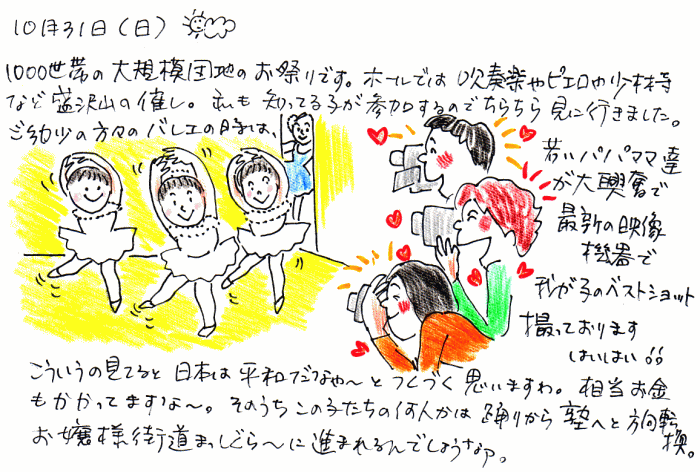 10月31日(日)
1000世帯の大規模団地のお祭りです。ホールでは吹奏楽やピエロや少林寺
など盛沢山の催し。私も知ってる子が参加するのでちらちら見に行きました。
ご幼少の方々のバレエの時は、
若いパパママ達
が大興奮で
最新の映像
機器で
我が子のベストショット
撮っております
はいはい。
こういうの見てると日本は平和だなや〜とつくづく思いますわ。相当お金
もかかってますな〜。そのうちこの子たちの何人かは踊りから塾へと方向転
換。
お嬢様街道まっしぐら〜に進まれるんでしょうなァ。